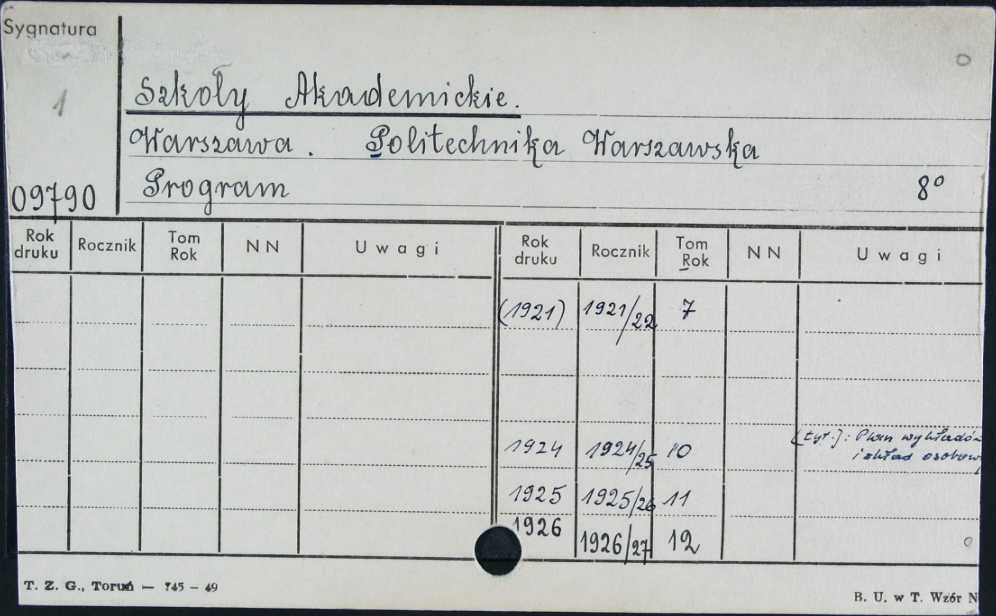 Sygnatura
1
Szkoły Akademickie.
Warszawa. Politechnika Warszawska
09790 Program 8º
Rok druku Rocznik Tom Rok N N Uwagi Rok druku Rocznik Tom Rok N N Uwagi
(1921) 1921/22 7
1924 1924/25 10 [tyt.]: Plan wykładów
i skład osobowy
1925 1925/26 11
1926 1926/27 12
T. Z. G., Toruń — 745 - 49 B. U. w T. Wzór N